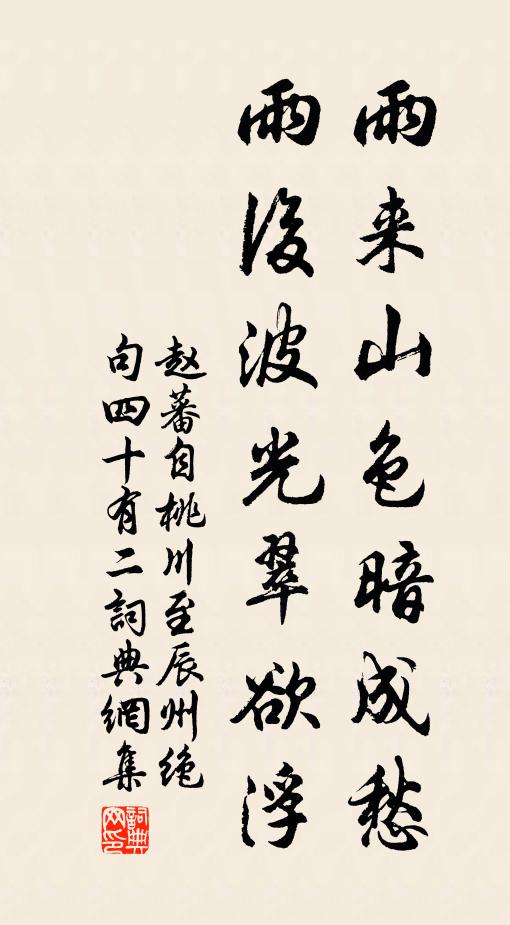 雨来山色暗成愁
雨後波光翠欲浮
赵蕃自桃川至辰州绝
句四十有二詞典網集
詞典
网印